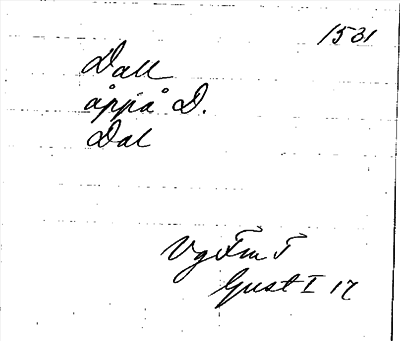 1531
Dall
åppå D.
Dal
VgFmT
Gust I 17